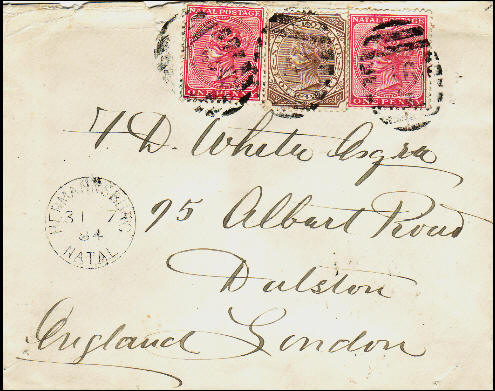 NATAL POSTAGE NATAL POSTAGE
ONE PENNY ONE PENNY
White Esqre
HERMANNSBURG
31 7
84
NATAL
95 Albert Road
Dalston
England London